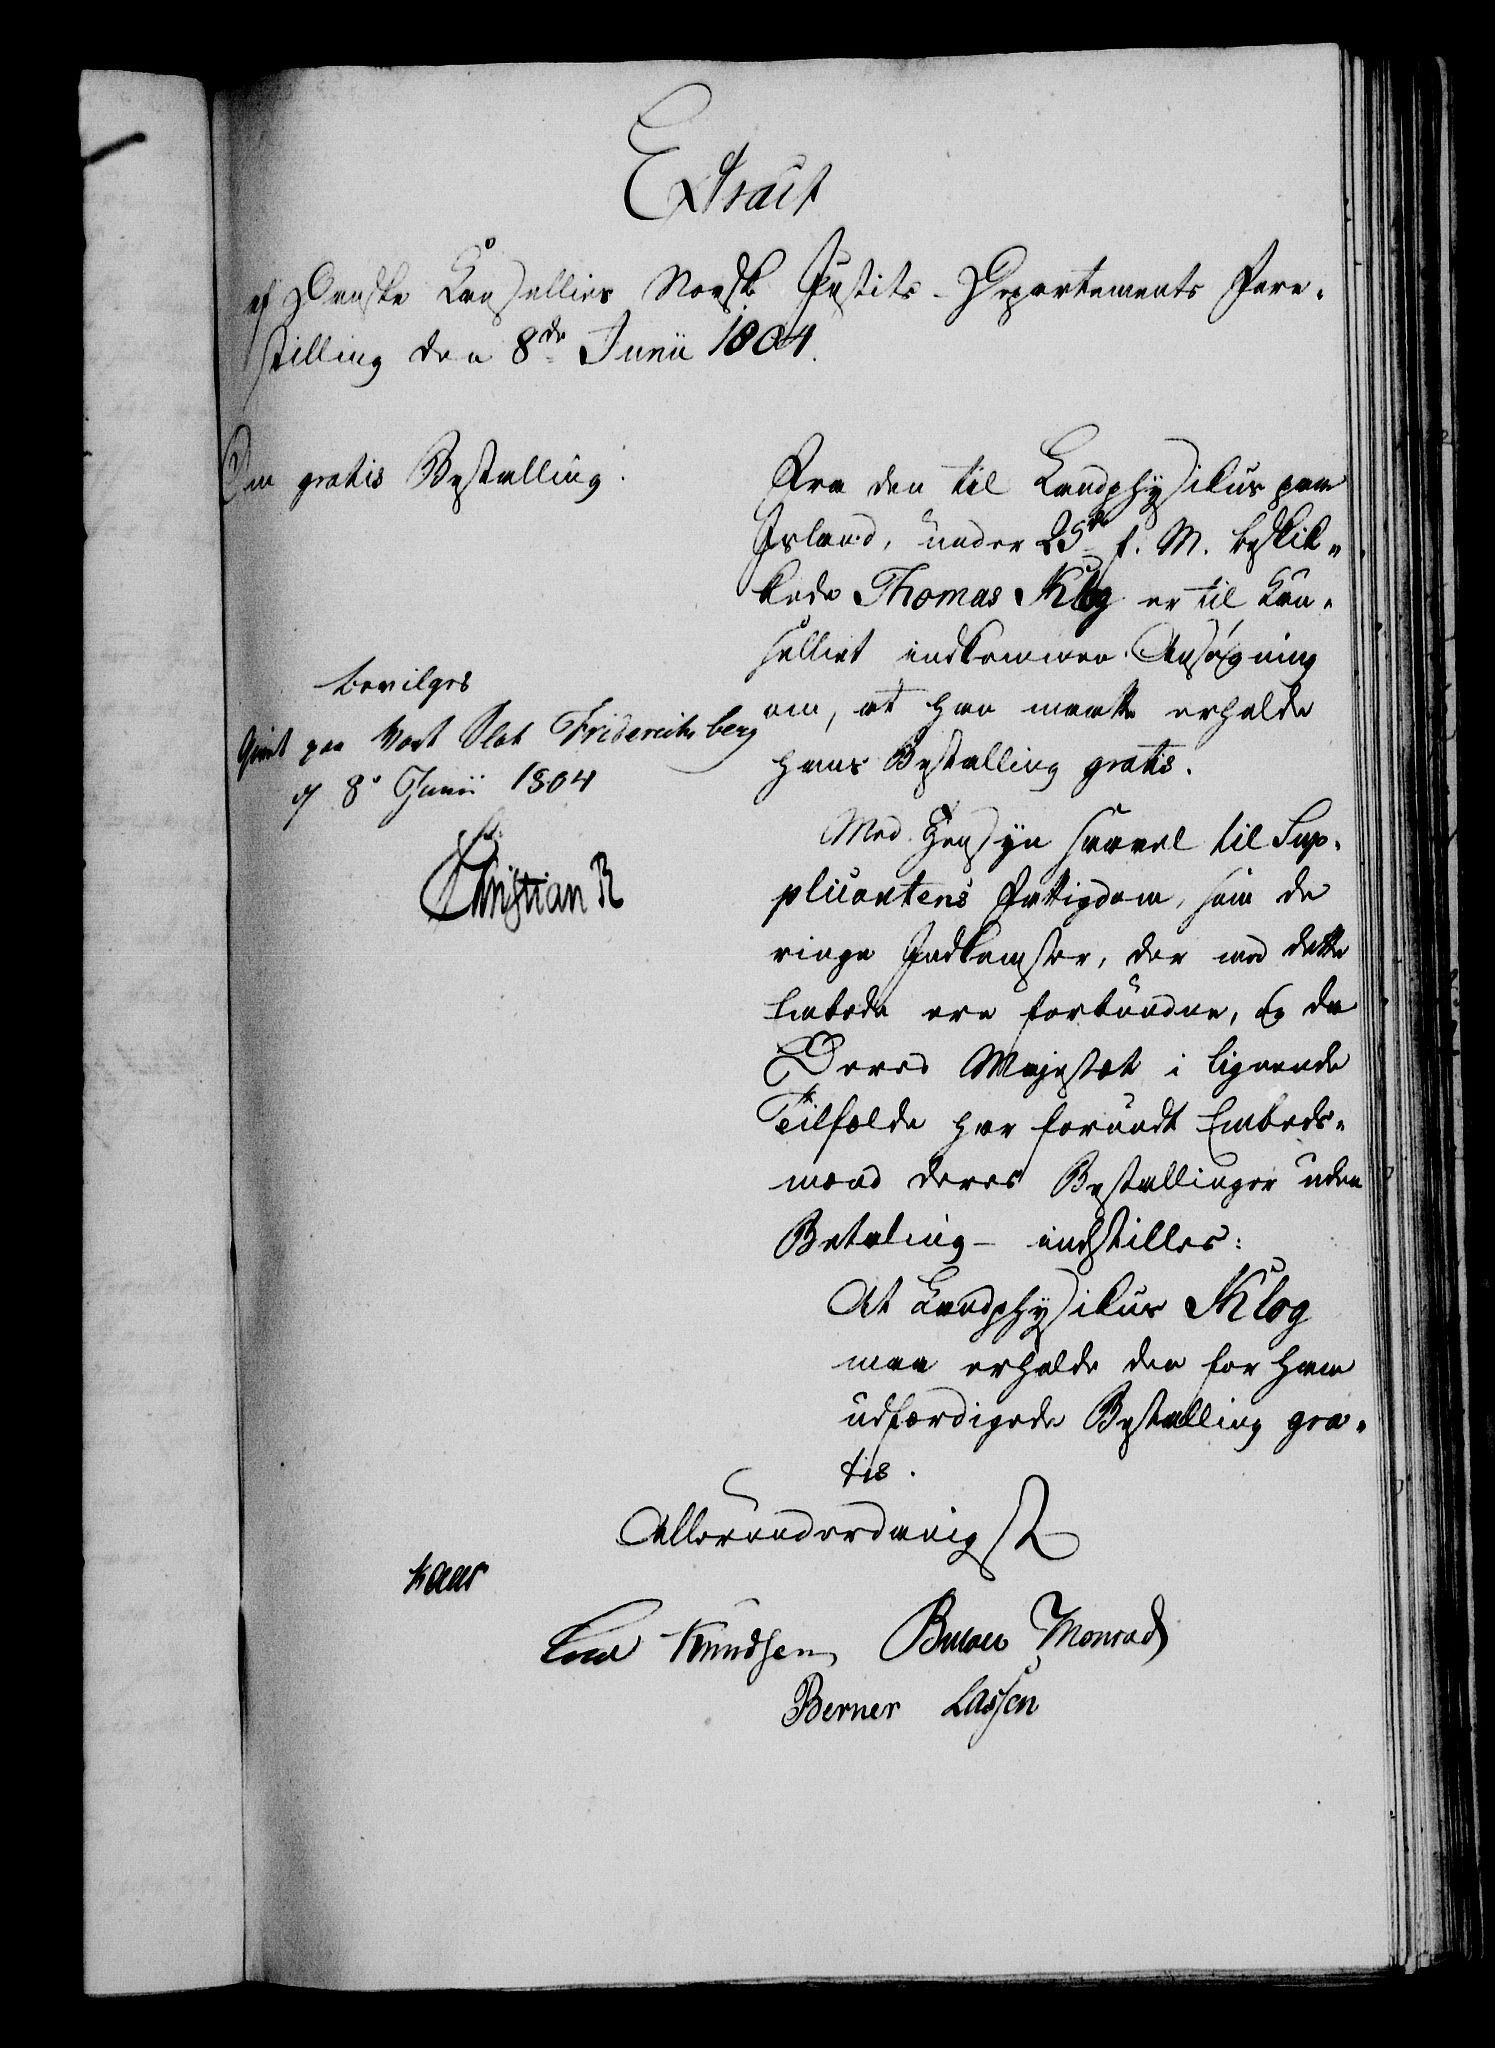 Extract
af Danske Cancelliets Norske Justits-Departements Fore-
stilling den 8de Junii 1804.
Om gratis Bestalling.
Fra den til Landphysikus paa
Island, under 25de f. M. beskik-
kede Thomas Klog er til Can-
celliet indkommen Ansøgning
om, at han maatte erholde
hans Bestalling gratis.
Med Hensyn saavel til Sup-
plicantens Fattigdom, som de
ringe Indkomster, der med dette
Embede ere forbundne, og da
Deres Majestæt i lignende
Tilfælde har forundt Embeds-
mænd deres Bestallinger uden
Betaling - indstilles:
At Landphysikus Klog
maa erholde den for ham
udfærdigede Bestalling gra-
tis.
Allerunderdanigst
bevilges
Givet paa Vort Slot Friderichsberg
d 8de Junii 1804
Christian R
Kaas
Knudsen Bülow Monrad
Berner Lassen